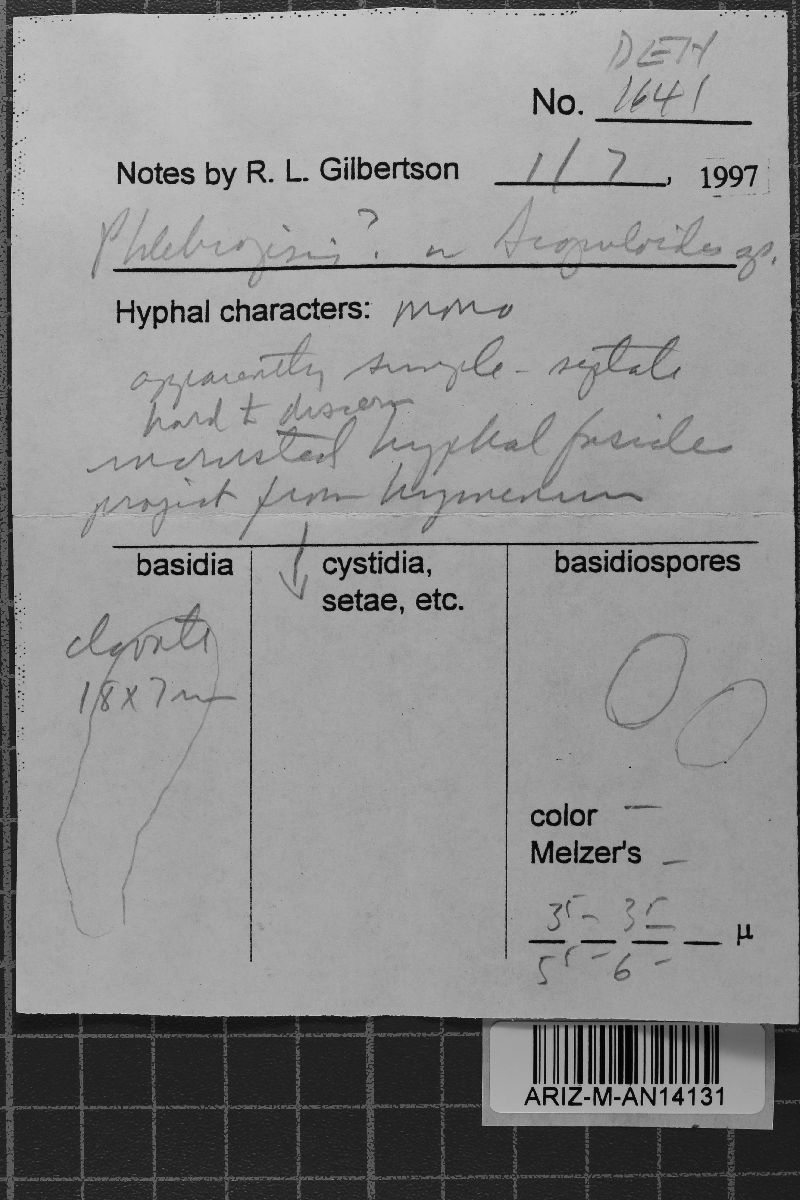 DEH
No. 1641
Notes by R. L. Gilbertson 1/7, 1997
? or sp.
Hyphal characters: mono
apparently simple-septate
hard to discern
incrusted hyphal fascicles
project from hymenium
basidia
cystidia,
setae, etc.
basidiospores
clavate
18x7
color —
Melzer's —
35 - 35 -
µ
55 - 6 -
ARIZ-M-AN14131